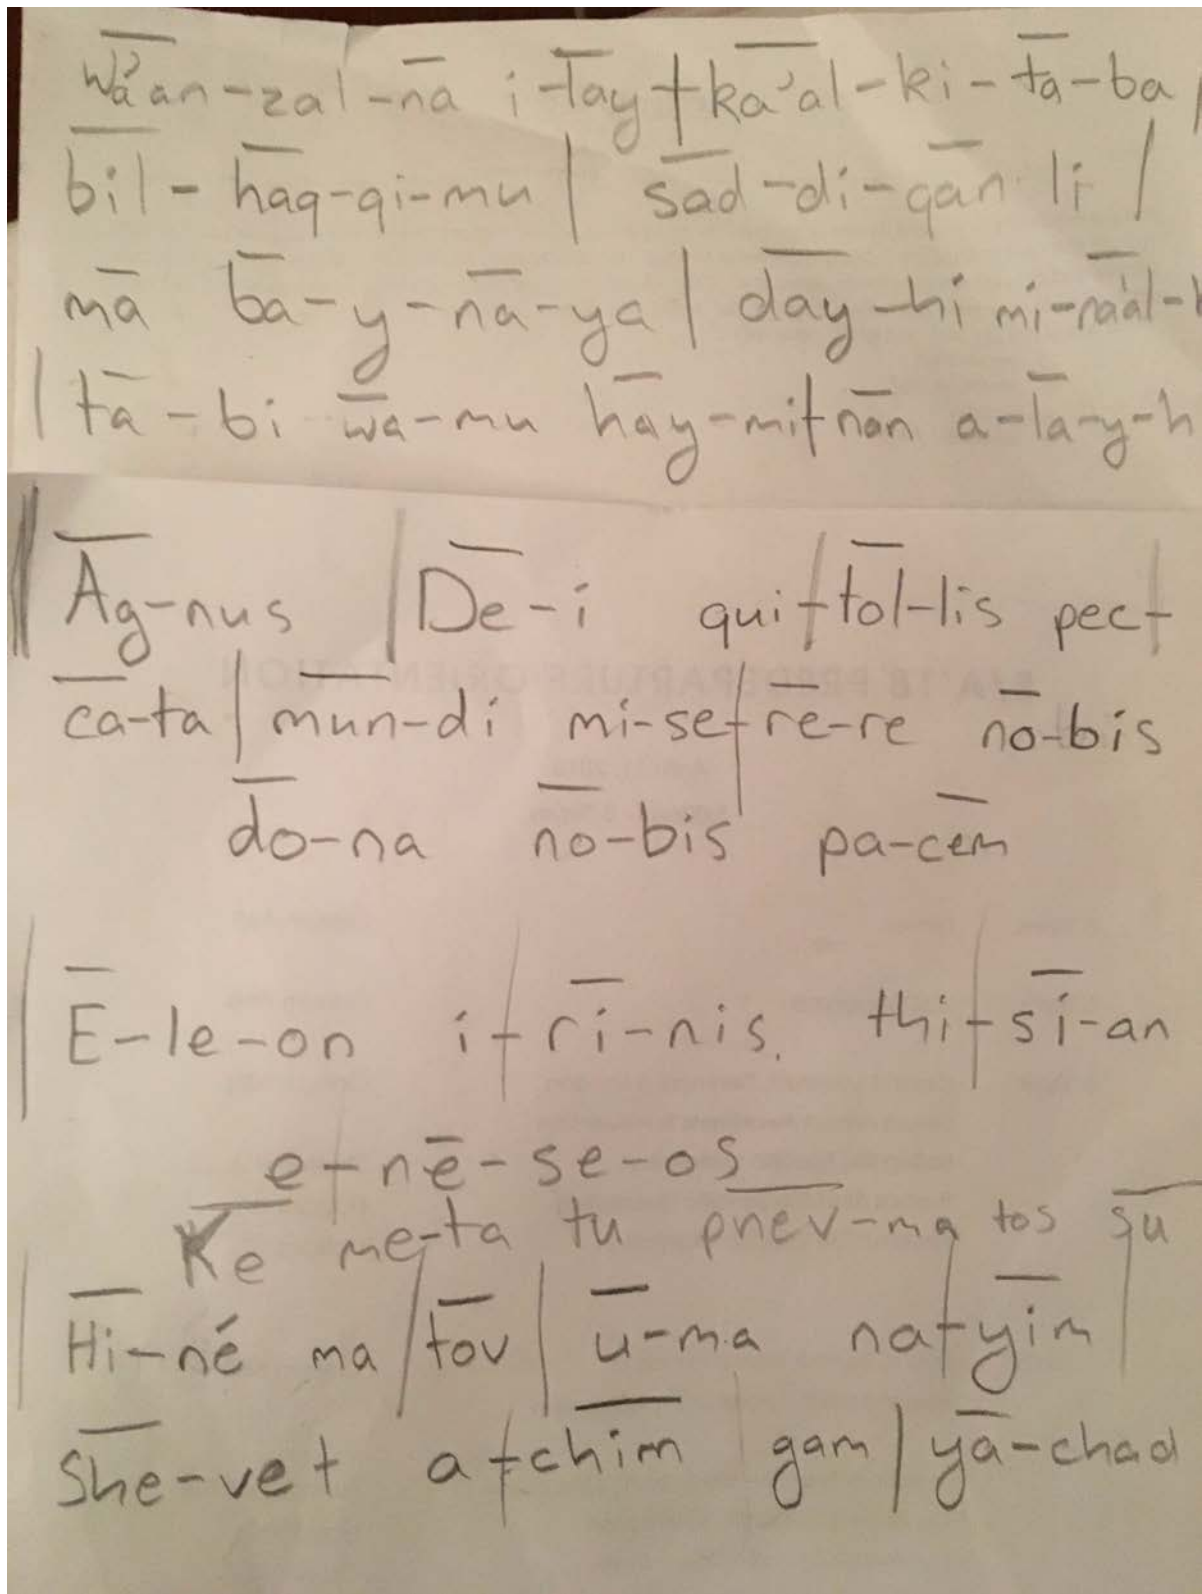 wa'an-zal-nā i-tay-ka'al-ki-tā-ba
bil-haq-qi-mu | sad-di-qan li |
mā ba-y-nā-ya | day-hi mi-na'al-k
| tā-bi wa-mu hay-mi-nān a-la-y-h
Ag-nus | De-i qui-|tol-lis pec-
ca-ta | mun-di mi-se-|re-re no-bis
do-na no-bis pa-cem
| E-le-on i-|ri-nis. thi-|si-an
e-|ne-se-os
Ke me-ta tu pnev-ma tos su
Hi-né ma | tov | u-ma na-|yim |
She-vet a-|chim gam | ya-chad